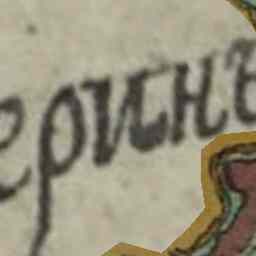 еринъ